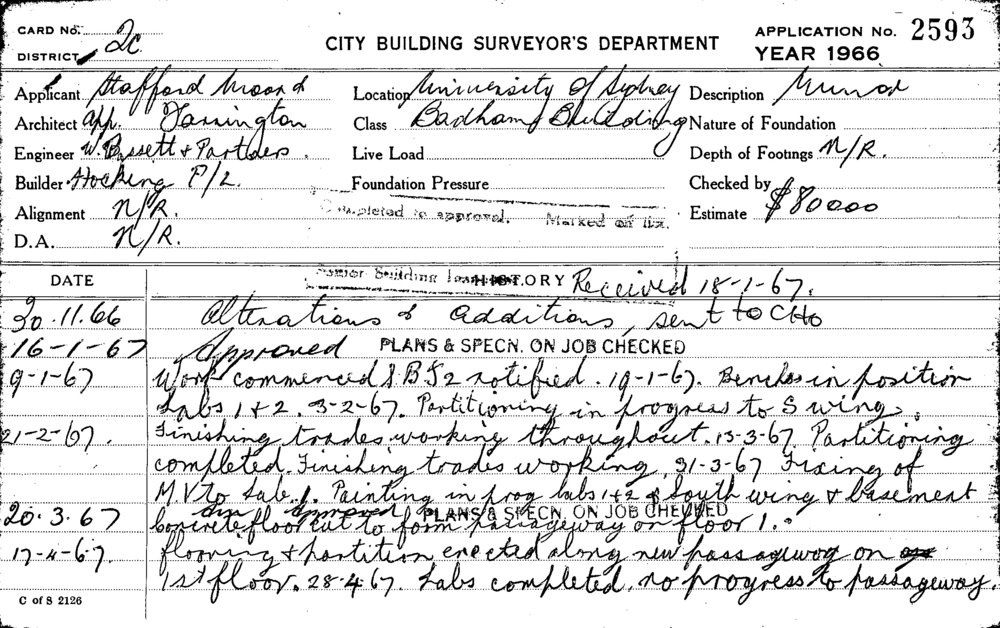 CARD No. 2c
DISTRICT
CITY BUILDING SURVEYOR'S DEPARTMENT
APPLICATION No. 2593
YEAR 1966
Applicant Stafford Moor &
Architect App. Farrington
Engineer W. Bassett & Partners.
Builder Hocking P/L.
Alignment N/R.
D.A. N/R.
Location University Of Sydney
Class Badham Building
Live Load
Foundation Pressure
Completed to approval. Marked off
Description Minor
Nature of Foundation
Depth of Footings N/R.
Checked by
Estimate $80000
DATE
Senior Building HISTORY Received 18-1-67.
30.11.66 Alterations & additions, sent to CHO
16-1-67 Approved PLANS & SPECN. ON JOB CHECKED
9-1-67 Work commenced S.B.S2 notified. 19-1-67. Benches in position
Labs 1 & 2. 3-2-67. Partitioning in progress to S wing.
21-2-67. Finishing trades working throughout. 13-3-67. Partitioning
completed. Finishing trades working. 31-3-67 Fixing of
M.V. to Lab. 1. Painting in prog labs 1 & 2 & South wing & basement
20.3.67 Approved PLANS & SPECN. ON JOB CHECKED
Concrete floor cut to form passageway on floor 1.
17-4-67. flooring & partition erected along new passageway on
1st floor. 28.4.67. Labs completed. no progress to passageway.
C of S 2126